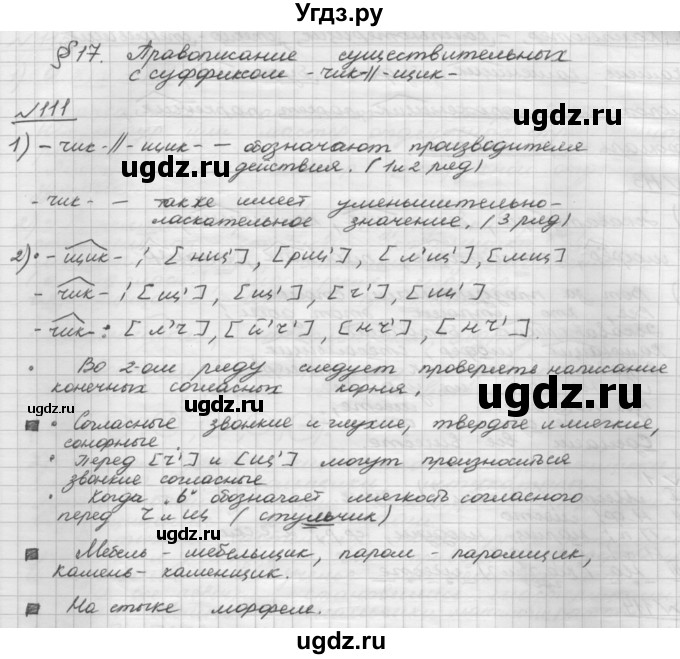 Угдз.ру
§17. Правописание существительных
с суффиксом -чик-// -щик-
№111
1) -чик-// -щик- — обозначают производителя
действия. (1 и 2 ряд)
-чик- — также имеет уменьшительно-
ласкательное значение. (3 ряд)
2) • -щик- ; [нщ'], [рщ'], [л'щ'], [мщ]
-чик- ; [щ'], [щ'], [ч'], [щ']
-чик- : [л'ч], [й'ч'], [нч'], [нч'].
• Во 2-ом ряду следует проверять написание
конечных согласных корня.
• Согласные звонкие и глухие, твердые и мягкие,
сонорные.
• Перед [ч'] и [щ'] могут произноситься
звонкие согласные
• Когда "ь" обозначает мягкость согласного
перед ч и щ (стульчик)
Мебель - мебельщик, паром - паромщик,
камень - каменщик.
На стыке морфем.
ugdz.ru
ugdz.ru
ugdz.ru
ugdz.ru
ugdz.ru
ugdz.ru
ugdz.ru
ugdz.ru
ugdz.ru
ugdz.ru
ugdz.ru
ugdz.ru